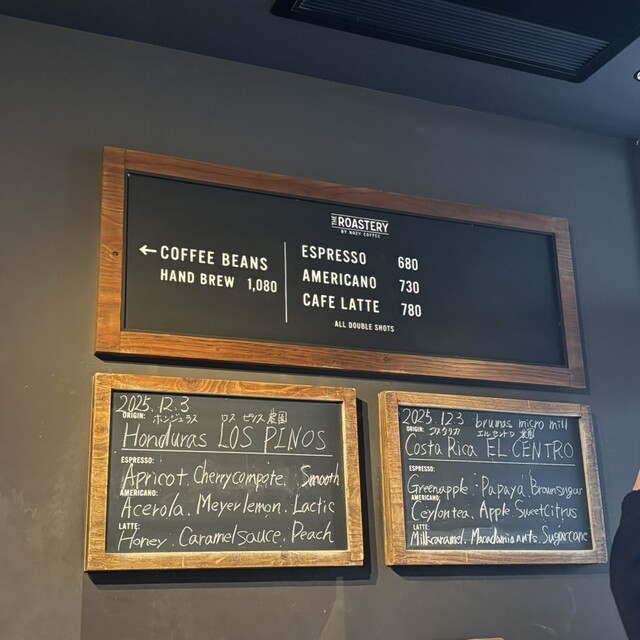 THE ROASTERY
BY NOZY COFFEE
←COFFEE BEANS
HAND BREW 1,080
ESPRESSO 680
AMERICANO 730
CAFE LATTE 780
ALL DOUBLE SHOTS
2025.12.3
ORIGIN: ホンジュラス ロス ピノス 農園
Honduras LOS PINOS
ESPRESSO:
Apricot. Cherrycompote. Smooth
AMERICANO:
Acerola. Meyerlemon. Lactic
LATTE:
Honey. Caramelsauce. Peach
2025 12.3 brumas micro mill
ORIGIN: コスタリカ エルセントロ 農園
Costa Rica EL CENTRO
ESPRESSO:
Greenapple. Papaya. Brownsugar
AMERICANO:
Ceylontea. Apple. SweetCitrus
LATTE:
Milkcaramel. Macadamianuts. Sugarcane